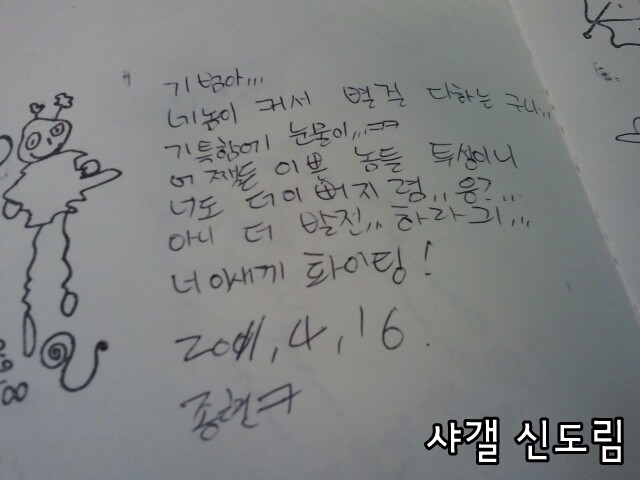 기범아...
네놈이 커서 별걸 다하는 구나...
기특함에 눈물이...ㅋㅋ
어쨌든 이쁜 놈들 투성이니
너도 더 이뻐지렴,, 응?...
아니 더 발전... 하라긔...
너 이새끼 화이팅!
2011, 4, 16.
종현ㅋ
샤갤 신도림